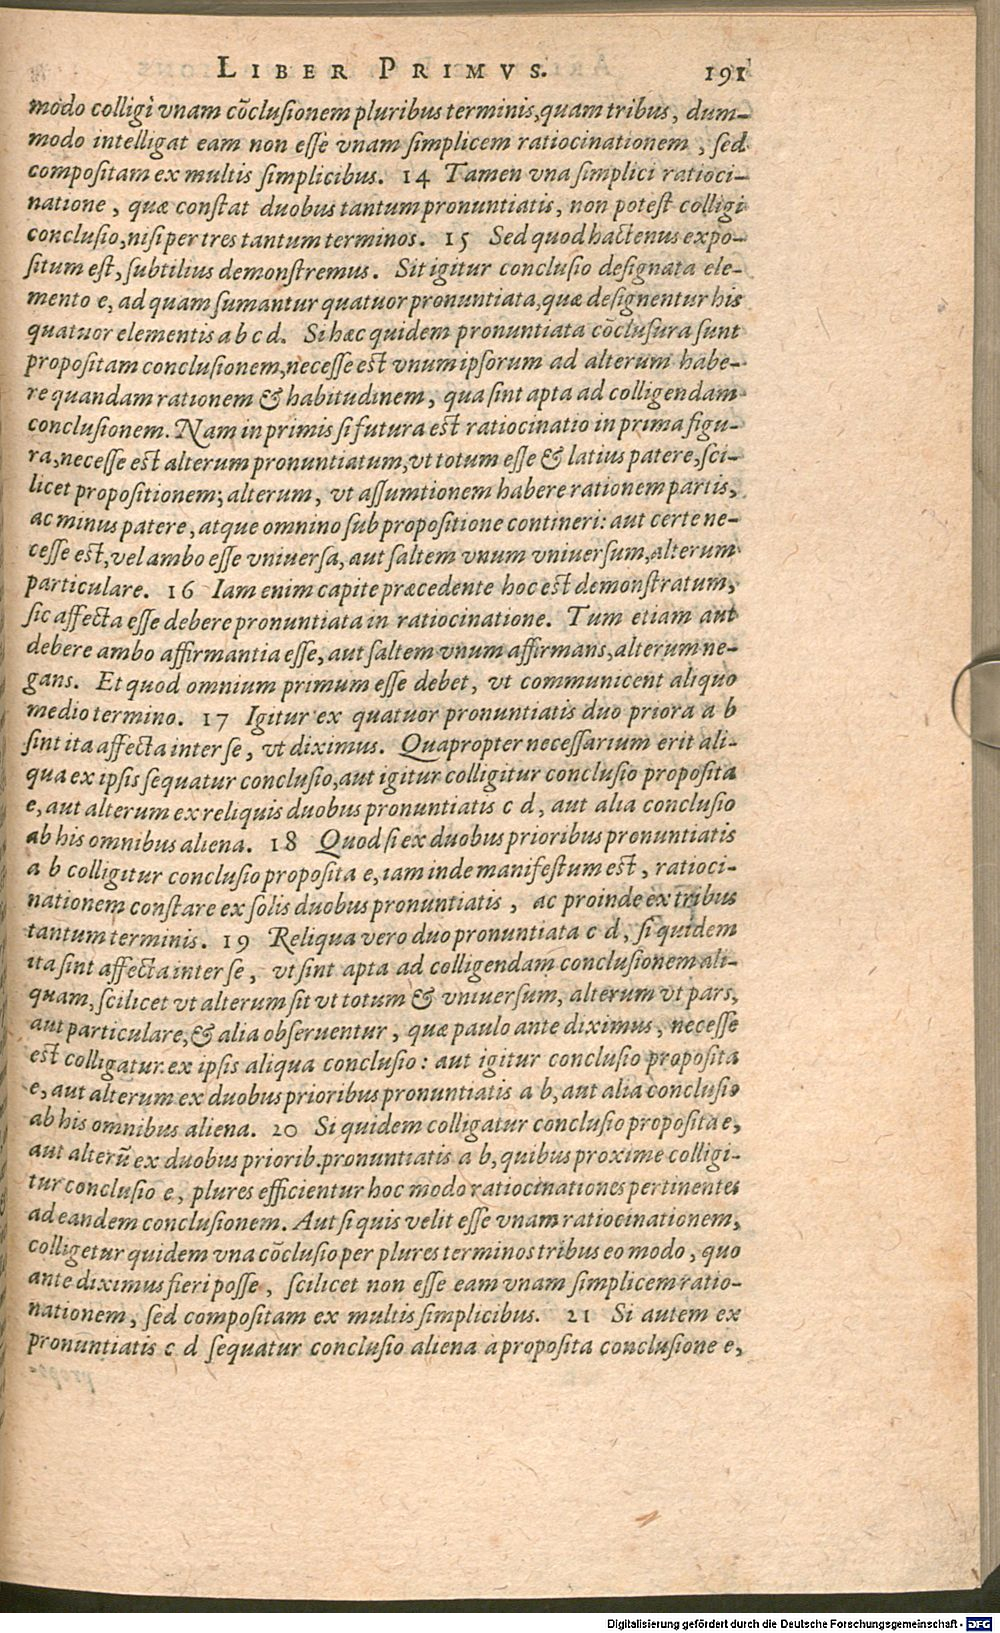 LIBER PRIMVS. 191
modo colligi vnam cõclusionem pluribus terminis, quam tribus, dum-
modo intelligat eam non esse vnam simplicem ratiocinationem, sed
compositam ex multis simplicibus. 14 Tamen vna simplici ratioci-
natione, quæ constat duobus tantum pronuntiatis, non potest colligi
conclusio, nisi per tres tantum terminos. 15 Sed quod hactenus expo-
situm est, subtilius demonstremus. Sit igitur conclusio designata ele-
mento e, ad quam sumantur quatuor pronuntiata, quæ designentur his
quatuor elementis a b c d. Si hæc quidem pronuntiata cõclusura sunt
propositam conclusionem, necesse est vnum ipsorum ad alterum habe-
re quandam rationem & habitudinem, qua sint apta ad colligendam
conclusionem. Nam in primis si futura est ratiocinatio in prima figu-
ra, necesse est alterum pronuntiatum, vt totum esse & latius patere, sci-
licet propositionem; alterum, vt assumtionem habere rationem partis,
ac minus patere, atque omnino sub propositione contineri: aut certe ne-
cesse est, vel ambo esse vniuersa, aut saltem vnum vniuersum, alterum
particulare. 16 Iam enim capite præcedente hoc est demonstratum,
sic affecta esse debere pronuntiata in ratiocinatione. Tum etiam aut
debere ambo affirmantia esse, aut saltem vnum affirmans, alterum ne-
gans. Et quod omnium primum esse debet, vt communicent aliquo
medio termino. 17 Igitur ex quatuor pronuntiatis duo priora a b
sint ita affecta inter se, vt diximus. Quapropter necessarium erit ali-
qua ex ipsis sequatur conclusio, aut igitur colligitur conclusio proposita
e, aut alterum ex reliquis duobus pronuntiatis c d, aut alia conclusio
ab his omnibus aliena. 18 Quod si ex duobus prioribus pronuntiatis
a b colligitur conclusio proposita e, iam inde manifestum est, ratioci-
nationem constare ex solis duobus pronuntiatis, ac proinde ex tribus
tantum terminis. 19 Reliqua vero duo pronuntiata c d, si quidem
ita sint affecta inter se, vt sint apta ad colligendam conclusionem ali-
quam, scilicet vt alterum sit vt totum & vniuersum, alterum vt pars,
aut particulare, & alia obseruentur, quæ paulo ante diximus, necesse
est colligatur ex ipsis aliqua conclusio: aut igitur conclusio proposita
e, aut alterum ex duobus prioribus pronuntiatis a b, aut alia conclusio
ab his omnibus aliena. 20 Si quidem colligatur conclusio proposita e,
aut alterũ ex duobus priorib. pronuntiatis a b, quibus proxime colligi-
tur conclusio e, plures efficientur hoc modo ratiocinationes pertinentes
ad eandem conclusionem. Aut si quis velit esse vnam ratiocinationem,
colligetur quidem vna cõclusio per plures terminos tribus eo modo, quo
ante diximus fieri posse, scilicet non esse eam vnam simplicem ratio-
nationem, sed compositam ex multis simplicibus. 21 Si autem ex
pronuntiatis c d sequatur conclusio aliena à proposita conclusione e,
Digitalisierung gefördert durch die Deutsche Forschungsgemeinschaft - DFG